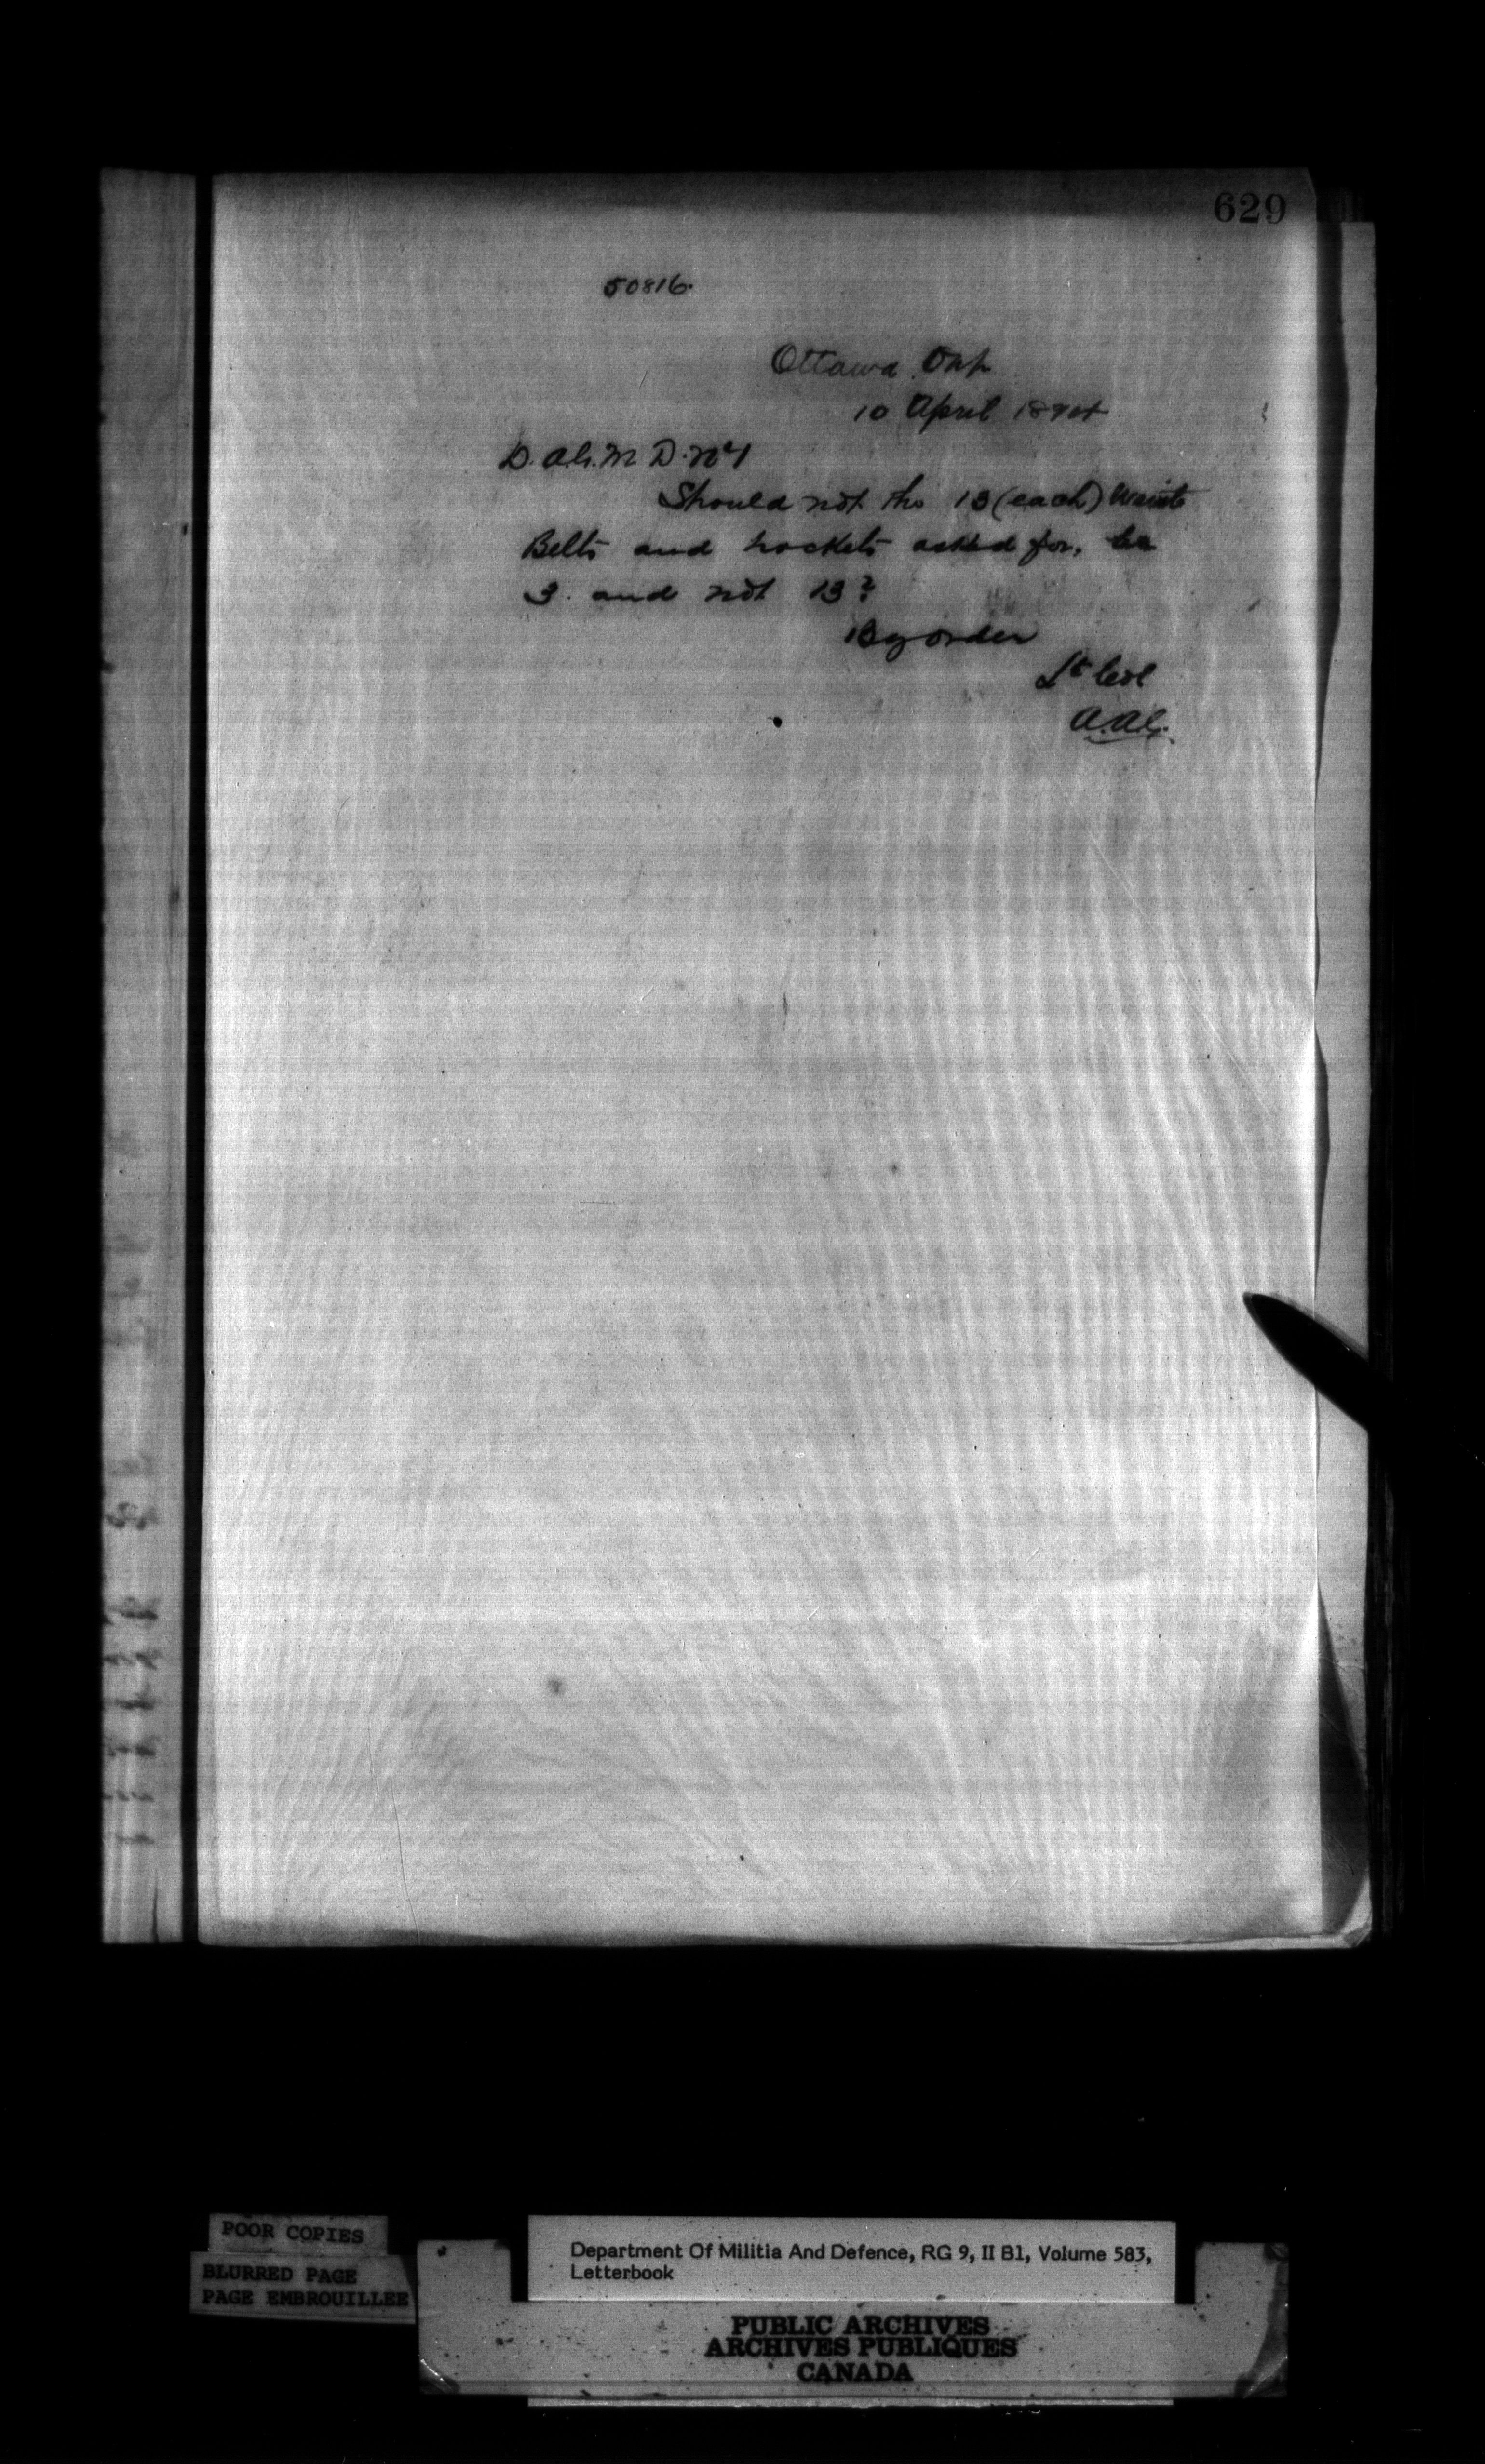 629
50816.
Ottawa. Ont
10 April 1894
D. A. G. M. D. No 1
Should not the 13 (each) Waist
Belts and sockets asked for, be
3. and not 13?
By order
Lt Col
A.A.G.
POOR COPIES
BLURRED PAGE
PAGE EMBROUILLEE
Department Of Militia And Defence, RG 9, II B1, Volume 583,
Letterbook
PUBLIC ARCHIVES
ARCHIVES PUBLIQUES
CANADA